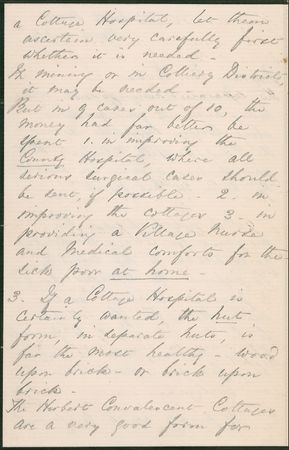 a Cottage Hospital, let them
ascertain very carefully first
whether it is needed -
In mining or in Colliery Districts
it may be needed
But in 9 cases out of 10, the
money had far better be
spent 1. in improving the
County Hospital, where all
serious surgical cases should
be sent, if possible - 2. in
improving the cottages 3. in
providing a Village Nurse
and Medical comforts for the
sick poor at home -
3. If a Cottage Hospital is
certainly wanted, the hut
form, in separate huts, is
far the most healthy - wood
upon brick - or brick upon
brick -
The Herbert Convalescent Cottages
are a very good form for